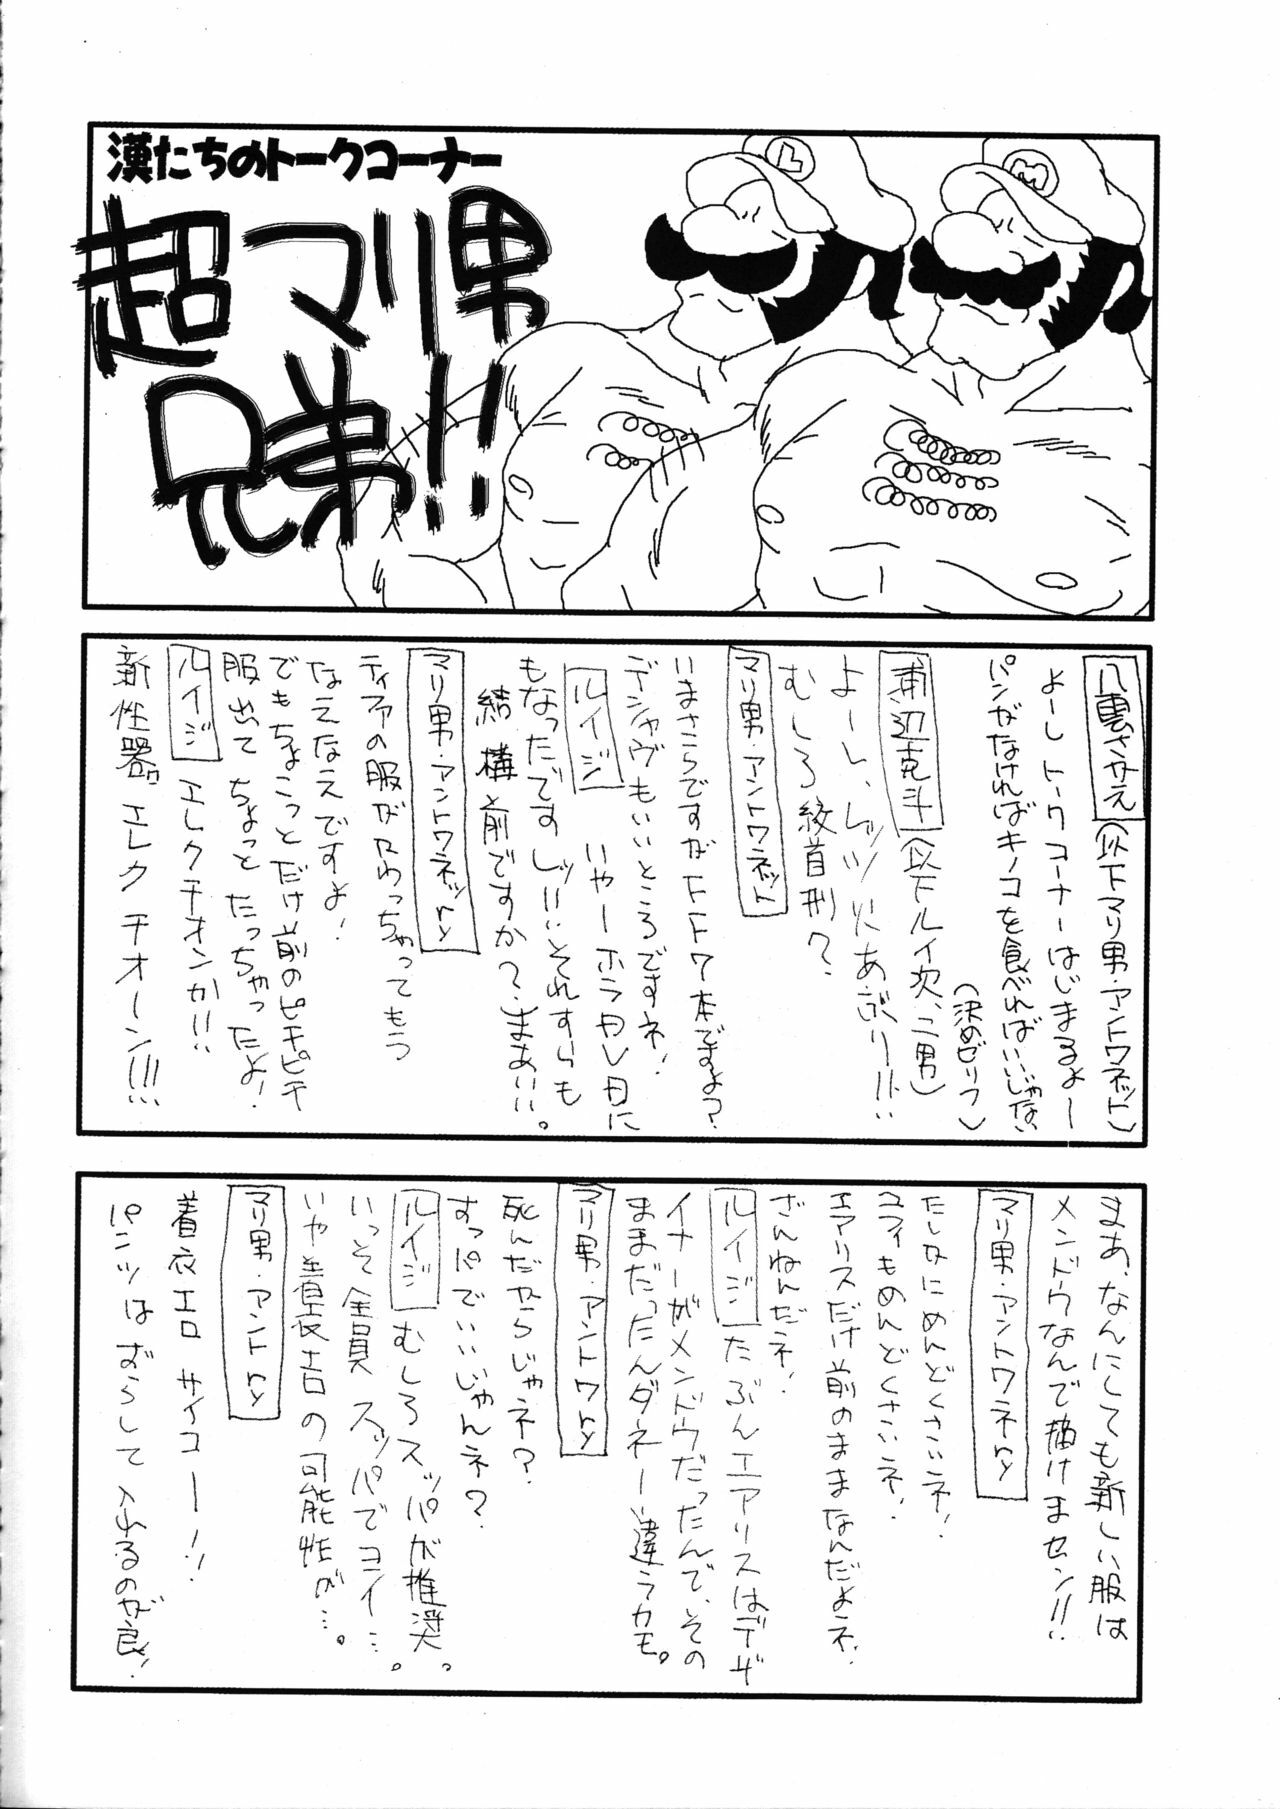 漢たちのトークコーナー
超マリ男
兄弟!!
L
M
八裏さかえ(以下マリ男・アントワネット)
よーし トークコーナーはじまるよ〜
パンがなければキノコを食べればいいじゃない
(決めゼリフ)
浦辺克斗(以下ルイ次、二男)
よーし、レッツ火あぶりー!!
むしろ絞首刑?
マリ男・アントワネット
いまさらですがFF7本ですよ?
デジャヴもいいところですネ!
ルイジ いやーホラACに
もなったですしッ!!それすらも
結構前ですか?、まあいい。
マリ男・アントワネッry
ティファの服がかわっちゃってもう
なえなえですよ!
でもちょこっとだけ前のピチピチ
服出てちょっとたっちゃったよ!
ルイジ エレクチオンか!!
新性器 エレクチオーン!!!
まあ、なんにしても新しい服は
メンドウなんで描けませセン!!
マリ男・アントワネry
たしかにめんどくさいネ!
ユフィもめんどくさいネ!
エアリスだけ前のままなんだよネ!
ざんねんだネ!
ルイジ たぶんエアリスはデザ
イナーがメンドウだったんで、その
ままだったんダネー 違うカモ。
マリ男・アントワry
死んだからじゃネ?
すっパでいいじゃんネ?
ルイジ むしろスッパが推奨。
いっそ全員スッパでコイ…。
いや着衣エロの可能性が…。
マリ男・アントry
着衣エロサイコー!!
パンツはずらして入れるのが良!